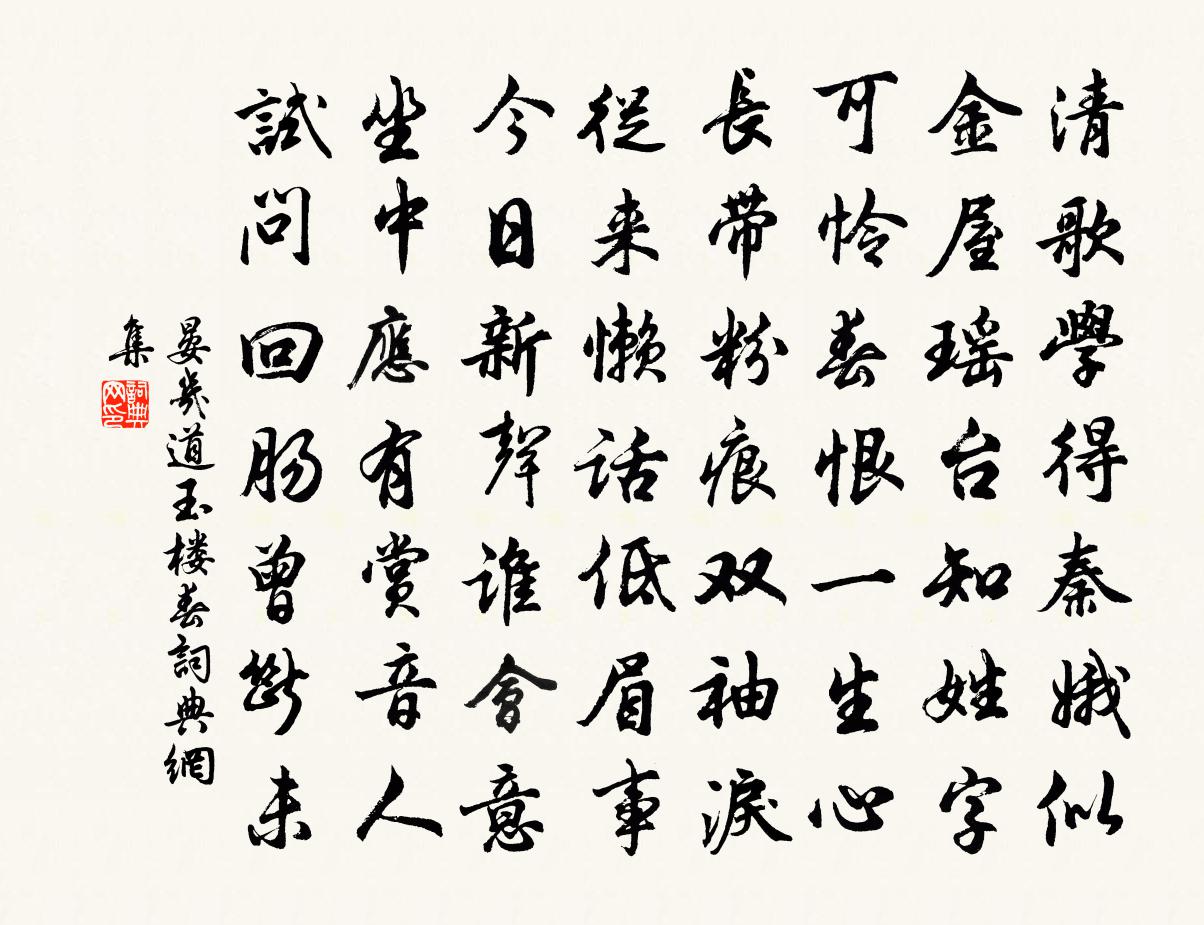 清歌學得秦娥似
金屋瑶台知姓字
可怜春恨一生心
長带粉痕双袖淚
從来懒话低眉事
今日新聲谁會意
坐中應有赏音人
試問回肠曾断未
晏幾道玉楼春詞典網
集
詞典网印